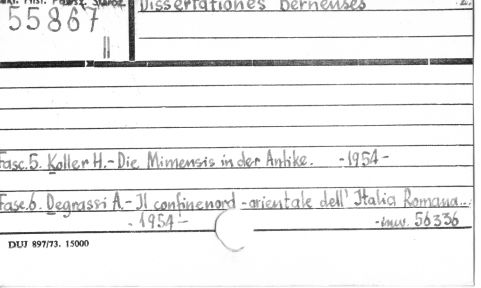 55867 Dissertationes Bernenses
Fasc.5. Koller H.-Die Mimensis in der Antike. -1954-
Fasc.6. Degrassi A.-Il confinenord-orientale dell' Italia Romana...
-1954- -inw. 56336
DUJ 897/73. 15000